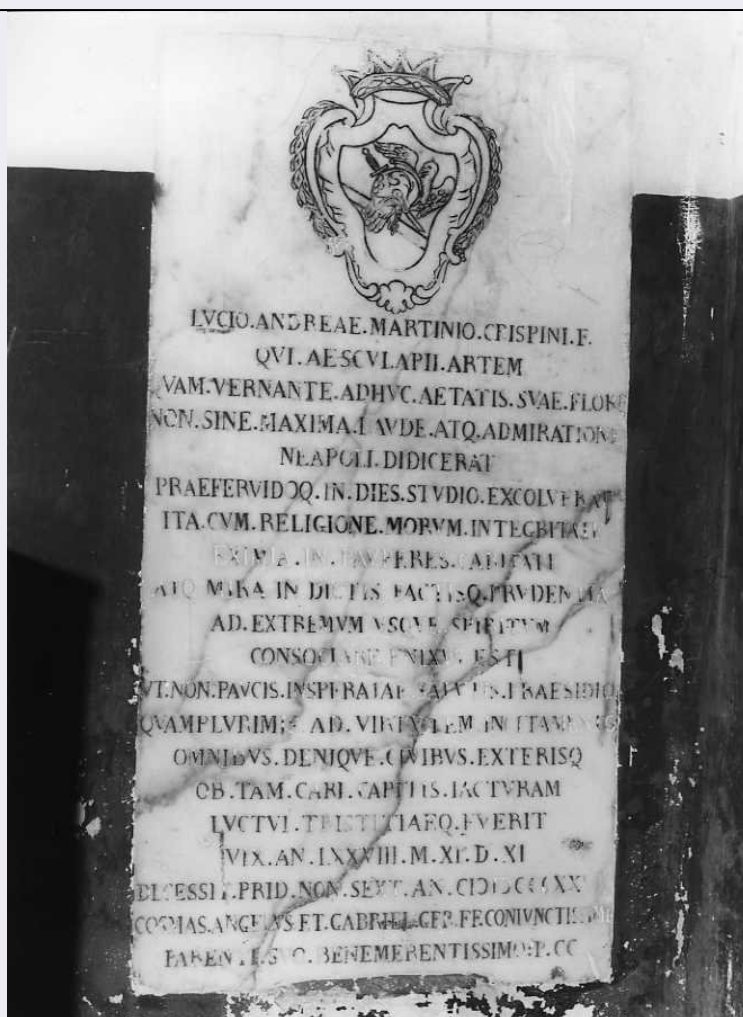 LVCIO.ANDREAE.MARTINIO.CRISPINI.F.
QVI.AESCVLAPII.ARTEM
QVAM.VERNANTE.ADHVC.AETATIS.SVAE.FLORE
NON.SINE.MAXIMA.LAVDE.ATQ.ADMIRATIONE
NEAPOLI.DIDICERAT
PRAEFERVIDOQ.IN.DIES.STVDIO.EXCOLVERAT
ITA.CVM.RELIGIONE.MORVM.INTEGRITATE
EXIMIA.IN.PAVPERES.CARITATE
ATQ MIRA IN DICTIS FACTISQ.PRVDENTIA
AD.EXTREMVM VSQVE SPIRITVM
CONSOCIARE ENIXVS EST
VT.NON.PAVCIS.INSPERATAE SALVTIS.PRAESIDIO
QVAMPLVRIMIS AD VIRTVTEM INCITAMENTO
OMNIBVS.DENIQVE.CIVIBVS.EXTERISQ
OB.TAM.CARI.CAPITIS.IACTVRAM
LVCTVI.TRISTITIAEQ.FVERIT
VIX.AN.LXXVIII.M.XI.D.XI
DECESSIT.PRID.NON.SEXT.AN.
COSMAS.ANGELVS.ET.GABRIEL.GER.FF.CONIVNCTISSIMI
PARENTI.SVO.BENEMERENTISSIMO.P.CC